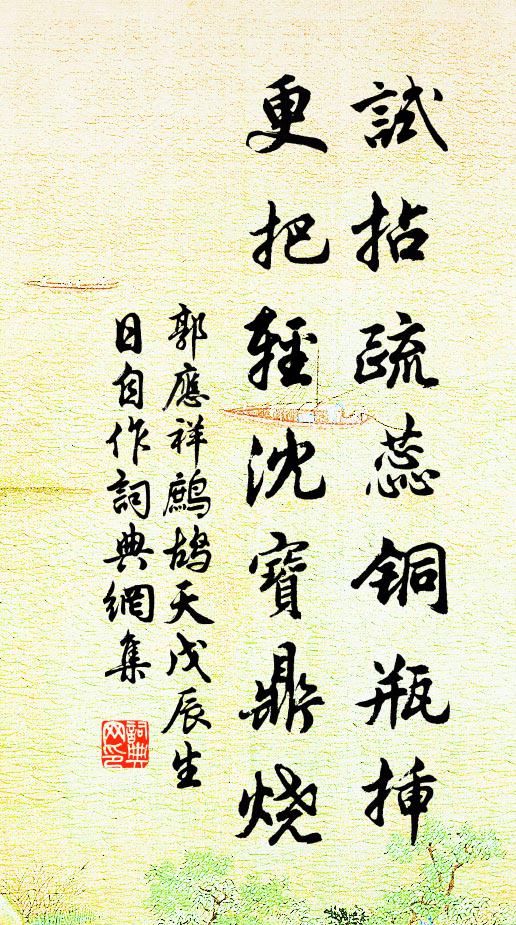 試拈疏蕊銅瓶挿
更把輕沈寶鼎燒
郭應祥鷓鴣天戊辰生
日自作詞典網集
詞典網印